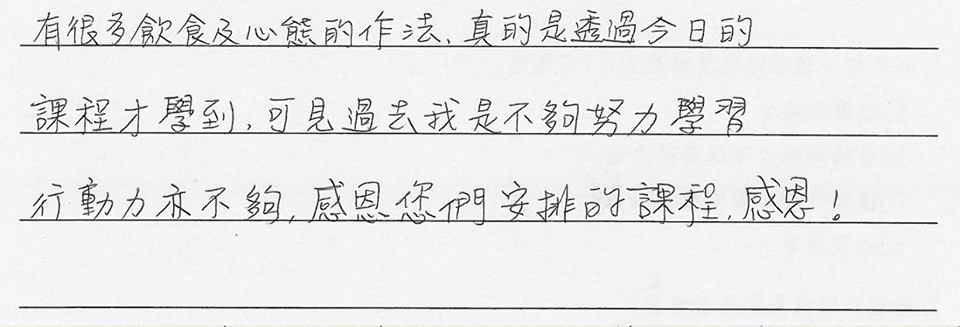 有很多飲食及心態的作法,真的是透過今日的
課程才學到,可見過去我是不夠努力學習
行動力亦不夠,感恩您們安排的課程,感恩!